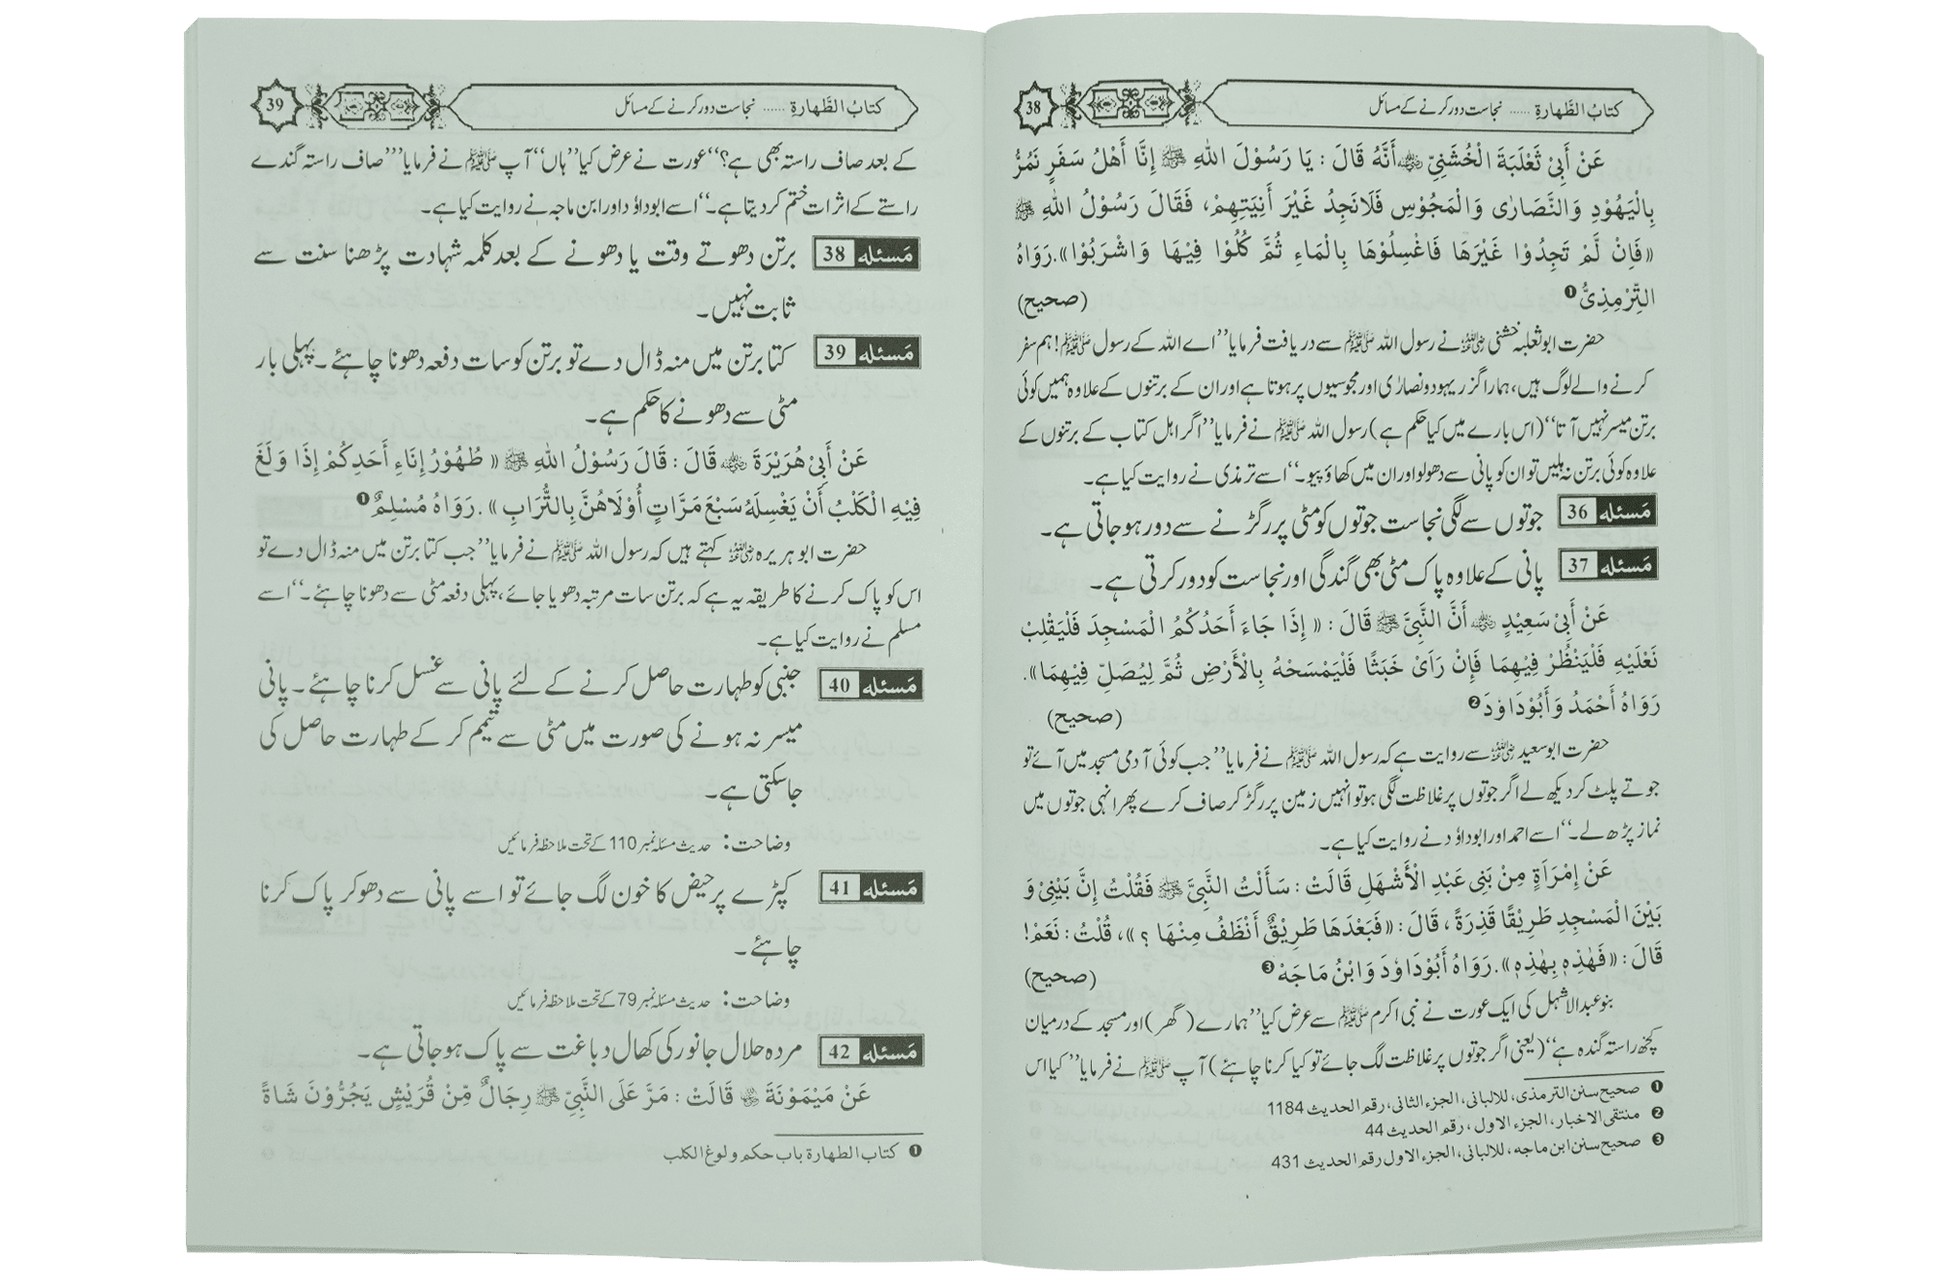 38 کتابُ الطَّهارةِ ...... نجاست دور کرنے کے مسائل
عَنْ أَبِیْ ثَعْلَبَةَ الْخُشَنِیِّ رضی اللہ عنہ أَنَّهُ قَالَ : يَا رَسُوْلَ اللهِ ﷺ إِنَّا أَهْلُ سَفَرٍ نَمُرُّ
بِالْيَهُوْدِ وَالنَّصَارٰى وَالْمَجُوْسِ فَلَانَجِدُ غَيْرَ أَنِيَتِهِمْ، فَقَالَ رَسُوْلُ اللهِ ﷺ
«فَاِنْ لَّمْ تَجِدُوْا غَيْرَهَا فَاغْسِلُوْهَا بِالْمَاءِ ثُمَّ كُلُوْا فِيْهَا وَاشْرَبُوْا».رَوَاهُ
التِّرْمِذِیُّ❶ (صحیح)
حضرت ابوثعلبہ خشنی رضی اللہ عنہ نے رسول اللہ ﷺ سے دریافت فرمایا ’’اے اللہ کے رسول ﷺ! ہم سفر
کرنے والے لوگ ہیں، ہمارا گزر یہود و نصارٰی اور مجوسیوں پر ہوتا ہے اور ان کے برتنوں کے علاوہ ہمیں کوئی
برتن میسر نہیں آتا‘‘ (اس بارے میں کیا حکم ہے) رسول اللہ ﷺ نے فرمایا ’’اگر اہل کتاب کے برتنوں کے
علاوہ کوئی برتن نہ ملیں تو ان کو پانی سے دھولو اور ان میں کھاؤ پیو۔‘‘ اسے ترمذی نے روایت کیا ہے۔
مَسئله 36 جوتوں سے لگی نجاست جوتوں کو مٹی پر رگڑنے سے دور ہو جاتی ہے۔
مَسئله 37 پانی کے علاوہ پاک مٹی بھی گندگی اور نجاست کو دور کرتی ہے۔
عَنْ أَبِیْ سَعِيْدٍ رضی اللہ عنہ أَنَّ النَّبِیَّ ﷺ قَالَ : « إِذَا جَاءَ أَحَدُكُمُ الْمَسْجِدَ فَلْيَقْلِبْ
نَعْلَيْهِ فَلْيَنْظُرْ فِيْهِمَا فَإِنْ رَاَىٰ خَبَثًا فَلْيَمْسَحْهُ بِالْأَرْضِ ثُمَّ لِيُصَلِّ فِيْهِمَا».
رَوَاهُ أَحْمَدُ وَأَبُوْدَاوٗدَ❷ (صحیح)
حضرت ابوسعید رضی اللہ عنہ سے روایت ہے کہ رسول اللہ ﷺ نے فرمایا ’’جب کوئی آدمی مسجد میں آئے تو
جوتے پلٹ کر دیکھ لے اگر جوتوں پر غلاظت لگی ہو تو انہیں زمین پر رگڑ کر صاف کرے پھر انہی جوتوں میں
نماز پڑھ لے۔‘‘ اسے احمد اور ابوداؤد نے روایت کیا ہے۔
عَنْ إِمْرَأَةٍ مِنْ بَنِی عَبْدِ الْأَشْهَلِ قَالَتْ : سَأَلْتُ النَّبِیَّ ﷺ فَقُلْتُ إِنَّ بَيْنِیْ وَ
بَيْنَ الْمَسْجِدِ طَرِيْقًا قَذِرَةً ، قَالَ : «فَبَعْدَهَا طَرِيْقٌ أَنْظَفُ مِنْهَا ؟ »، قُلْتُ : نَعَمْ!
قَالَ : «فَهٰذِهٖ بِهٰذِهٖ».رَوَاهُ أَبُوْدَاوٗدَ وَابْنُ مَاجَهْ❸ (صحیح)
بنو عبد الاشہل کی ایک عورت نے نبی اکرم ﷺ سے عرض کیا ’’ہمارے (گھر) اور مسجد کے درمیان
کچھ راستہ گندہ ہے‘‘ (یعنی اگر جوتوں پر غلاظت لگ جائے تو کیا کرنا چاہئے) آپ ﷺ نے فرمایا ’’کیا اس
❶ صحیح سنن الترمذی، للالبانی، الجزء الثانی، رقم الحدیث 1184
❷ منتقی الاخبار، الجزء الاول ، رقم الحدیث 44
❸ صحیح سنن ابن ماجه ، للالبانی، الجزء الاول رقم الحدیث 431
39 کتابُ الطَّهارةِ ...... نجاست دور کرنے کے مسائل
کے بعد صاف راستہ بھی ہے؟‘‘ عورت نے عرض کیا ’’ہاں‘‘ آپ ﷺ نے فرمایا ’’’صاف راستہ گندے
راستے کے اثرات ختم کر دیتا ہے۔‘‘ اسے ابوداؤد اور ابن ماجہ نے روایت کیا ہے۔
مَسئله 38 برتن دھوتے وقت یا دھونے کے بعد کلمہ شہادت پڑھنا سنت سے
ثابت نہیں۔
مَسئله 39 کتا برتن میں منہ ڈال دے تو برتن کو سات دفعہ دھونا چاہئے۔ پہلی بار
مٹی سے دھونے کا حکم ہے۔
عَنْ أَبِیْ هُرَيْرَةَ رضی اللہ عنہ قَالَ : قَالَ رَسُوْلُ اللهِ ﷺ « طُهُوْرُ إِنَاءِ أَحَدِكُمْ إِذَا وَلَغَ
فِيْهِ الْكَلْبُ أَنْ يَغْسِلَهُ سَبْعَ مَرَّاتٍ أُوْلَاهُنَّ بِالتُّرَابِ » .رَوَاهُ مُسْلِمٌ❶
حضرت ابو ہریرہ رضی اللہ عنہ کہتے ہیں کہ رسول اللہ ﷺ نے فرمایا ’’جب کتا برتن میں منہ ڈال دے تو
اس کو پاک کرنے کا طریقہ یہ ہے کہ برتن سات مرتبہ دھویا جائے، پہلی دفعہ مٹی سے دھونا چاہئے۔‘‘ اسے
مسلم نے روایت کیا ہے۔
مَسئله 40 جنبی کو طہارت حاصل کرنے کے لئے پانی سے غسل کرنا چاہئے۔ پانی
میسر نہ ہونے کی صورت میں مٹی سے تیمم کر کے طہارت حاصل کی
جاسکتی ہے۔
وضاحت : حدیث مسئلہ نمبر 110 کے تحت ملاحظہ فرمائیں
مَسئله 41 کپڑے پر حیض کا خون لگ جائے تو اسے پانی سے دھو کر پاک کرنا
چاہئے۔
وضاحت : حدیث مسئلہ نمبر 79 کے تحت ملاحظہ فرمائیں
مَسئله 42 مردہ حلال جانور کی کھال دباغت سے پاک ہو جاتی ہے۔
عَنْ مَيْمُوْنَةَ رضی اللہ عنہا قَالَتْ : مَرَّ عَلَى النَّبِیِّ ﷺ رِجَالٌ مِّنْ قُرَيْشٍ يَجُرُّوْنَ شَاةً
❶ کتاب الطهارة باب حکم ولوغ الکلب